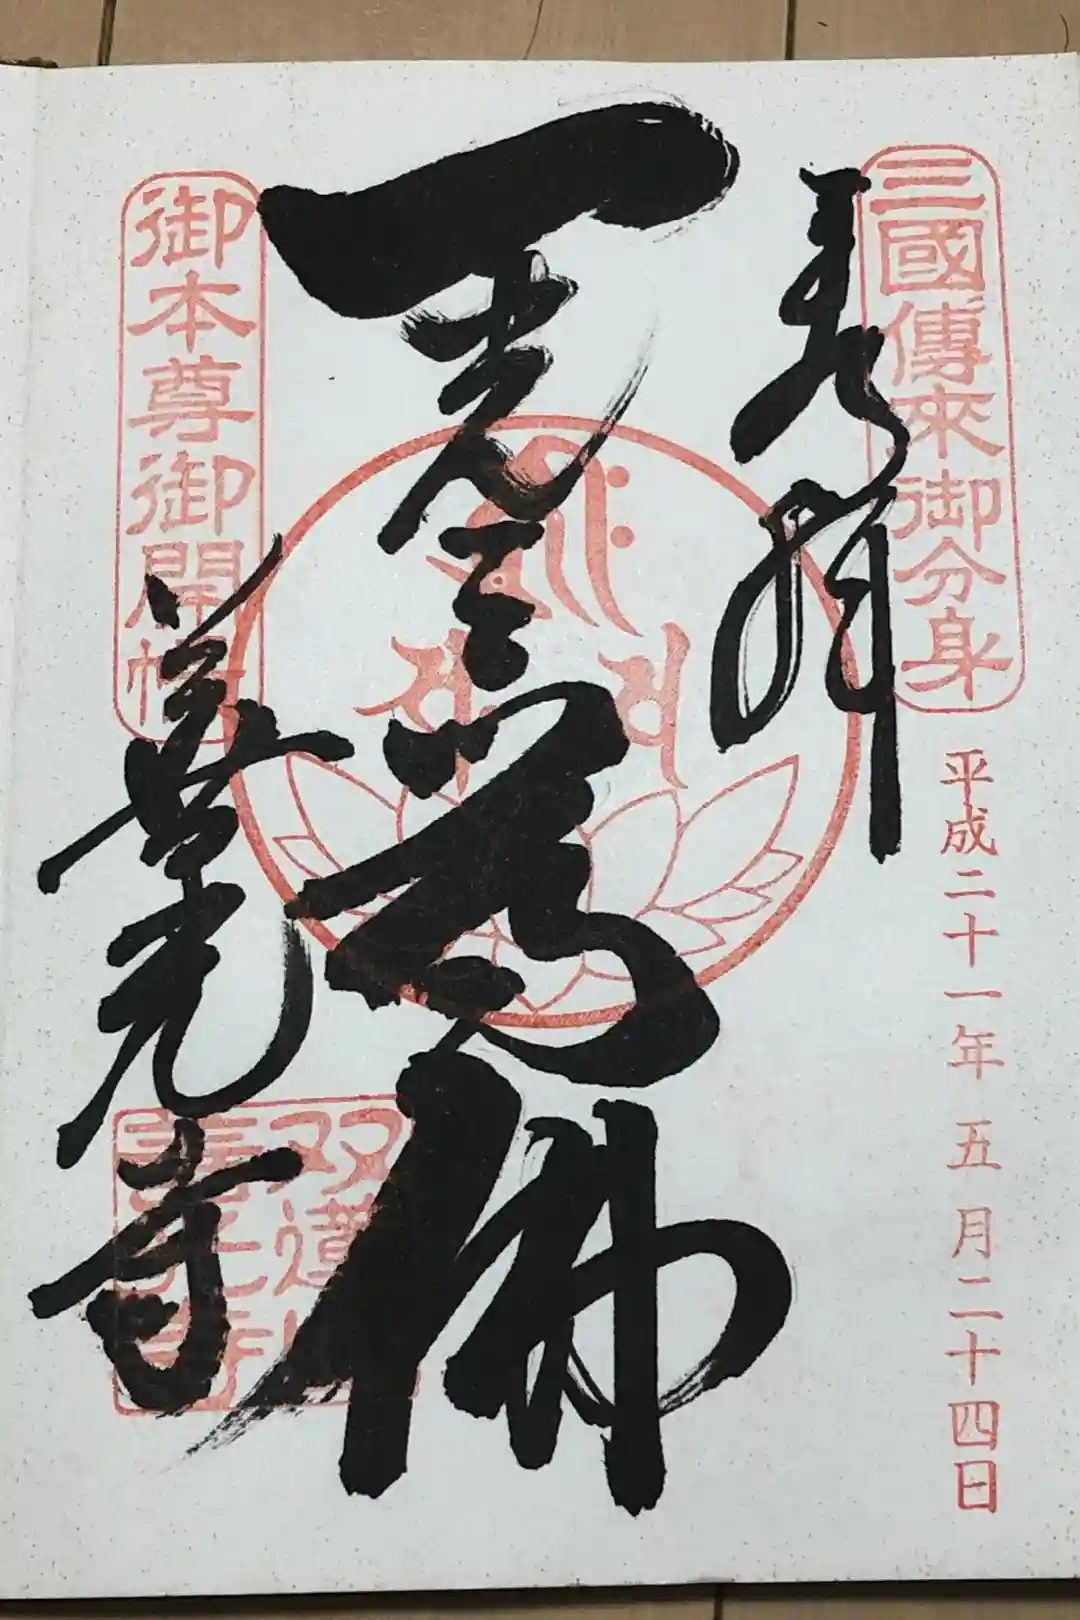 三國傳來御分身
奉拝
平成二十一年五月二十四日
一光三尊佛
御本尊御開帳
善光寺
双蓮山
善光寺